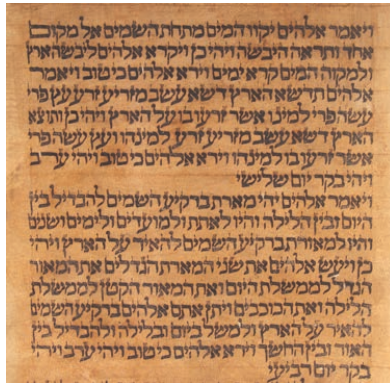 ויאמר אלהים יקוו המים מתחת השמים אל מקום
אחד ותראה היבשה ויהי כן ויקרא אלהים ליבשה ארץ
ולמקוה המים קרא ימים וירא אלהים כי טוב ויאמר
אלהים תדשא הארץ דשא עשב מזריע זרע עץ פרי
עשה פרי למינו אשר זרעו בו על הארץ ויהי כן ותוצא
הארץ דשא עשב מזריע זרע למינהו ועץ עשה פרי
אשר זרעו בו למינהו וירא אלהים כי טוב ויהי ערב
ויהי בקר יום שלישי
ויאמר אלהים יהי מארת ברקיע השמים להבדיל בין
היום ובין הלילה והיו לאתת ולמועדים ולימים ושנים
והיו למאורת ברקיע השמים להאיר על הארץ ויהי
כן ויעש אלהים את שני המארת הגדלים את המאור
הגדל לממשלת היום ואת המאור הקטן לממשלת
הלילה ואת הכוכבים ויתן אתם אלהים ברקיע השמים
להאיר על הארץ ולמשל ביום ובלילה ולהבדיל בין
האור ובין החשך וירא אלהים כי טוב ויהי ערב ויהי
בקר יום רביעי